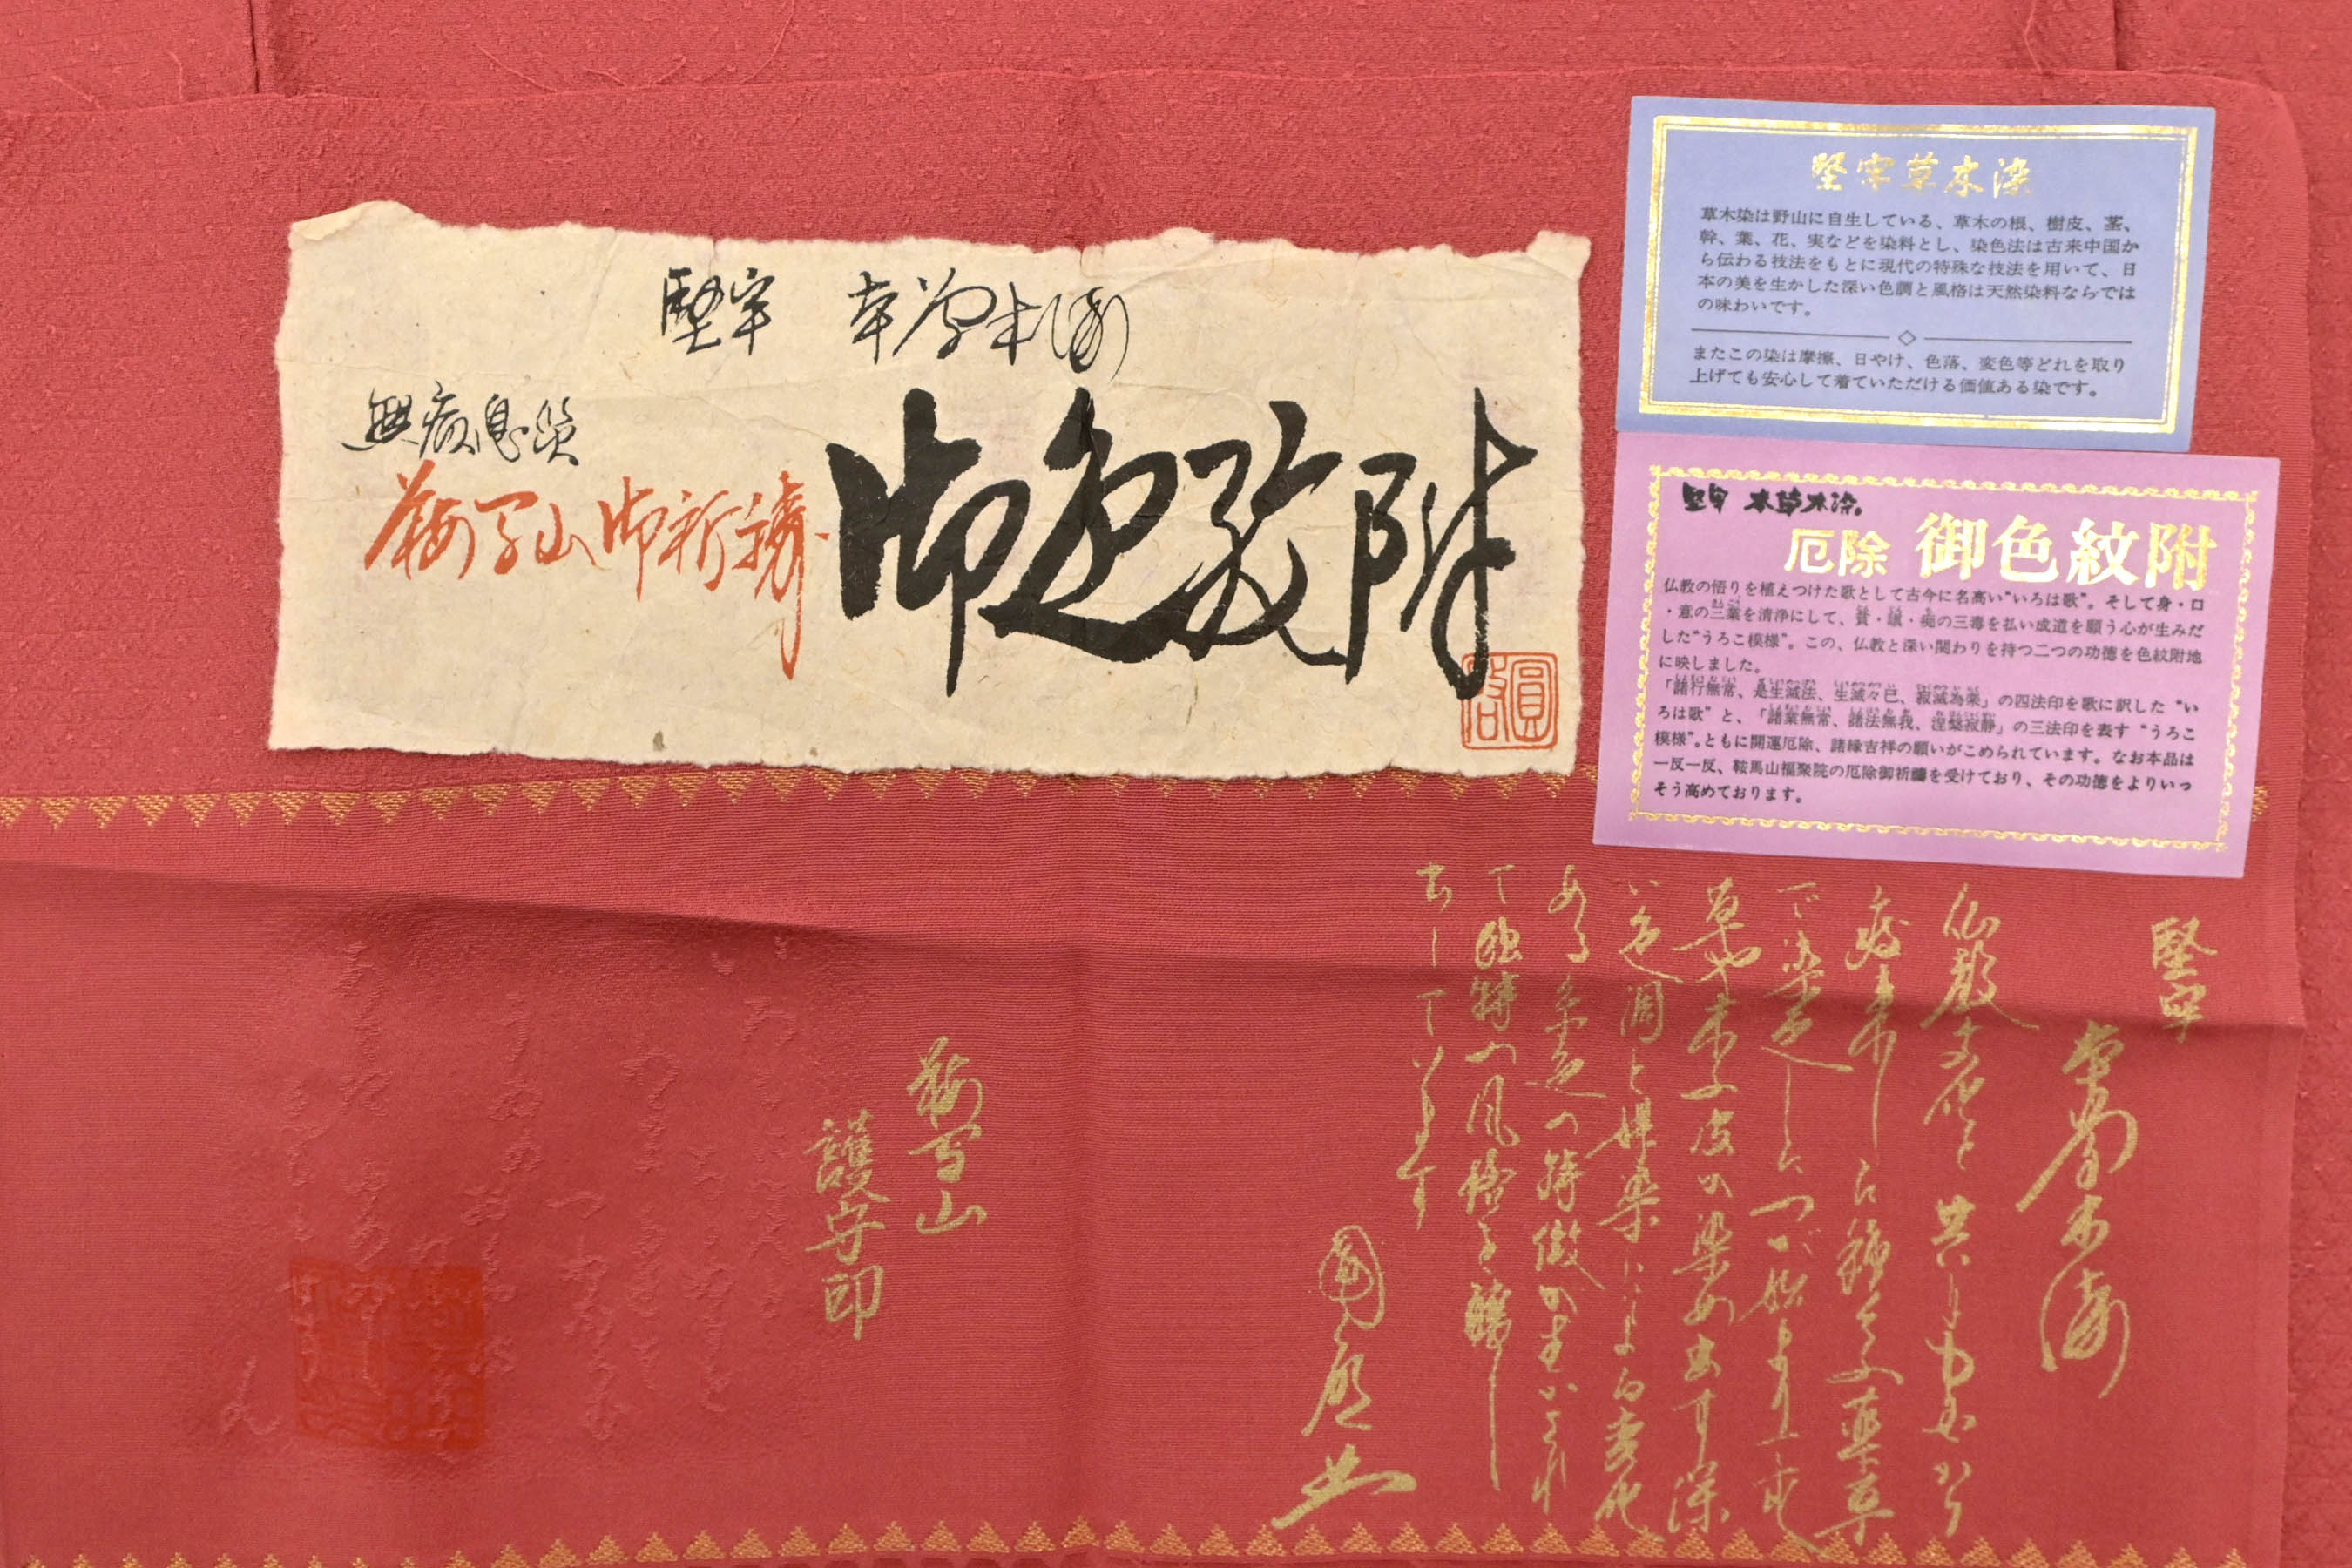 堅牢 本草木染
御色紋附
無病息災
鞍馬山御祈祷
圓啓
堅牢草木染
草木染は野山に自生している、草木の根、樹皮、茎、
幹、葉、花、実などを染料とし、染色法は古来中国か
ら伝わる技法をもとに現代の特殊な技法を用いて、日
本の美を生かした深い色調と風格は天然染料ならでは
の味わいです。
またこの染は摩擦、日やけ、色落、変色等どれを取り
上げても安心して着ていただける価値ある染です。
堅牢 本草木染
厄除 御色紋附
仏教の悟りを植えつけた歌として古今に名高い“いろは歌”。そして身・口
・意の三業を清浄にして、貪・瞋・痴の三毒を払い成道を願う心が生みだ
した“うろこ模様”。この、仏教と深い関わりを持つ二つの功徳を色紋附地
に映しました。
「諸行無常、是生滅法、生滅々已、寂滅為楽」の四法印を歌に訳した“い
ろは歌”と、「諸業無常、諸法無我、涅槃寂静」の三法印を表す“うろこ
模様”。ともに開運厄除、諸縁吉祥の願いがこめられています。なお本品は
一反一反、鞍馬山福聚院の厄除御祈祷を受けており、その功徳をよりいっ
そう高めております。
堅牢
本草木染
仏教文化と共に中国から
で染色したのが始まりで
草や木の皮の染め出す深
い色調と媒染による変化
ある色の特徴が生かされ
て独特の風格を醸し
出しています
鞍馬山
護守印